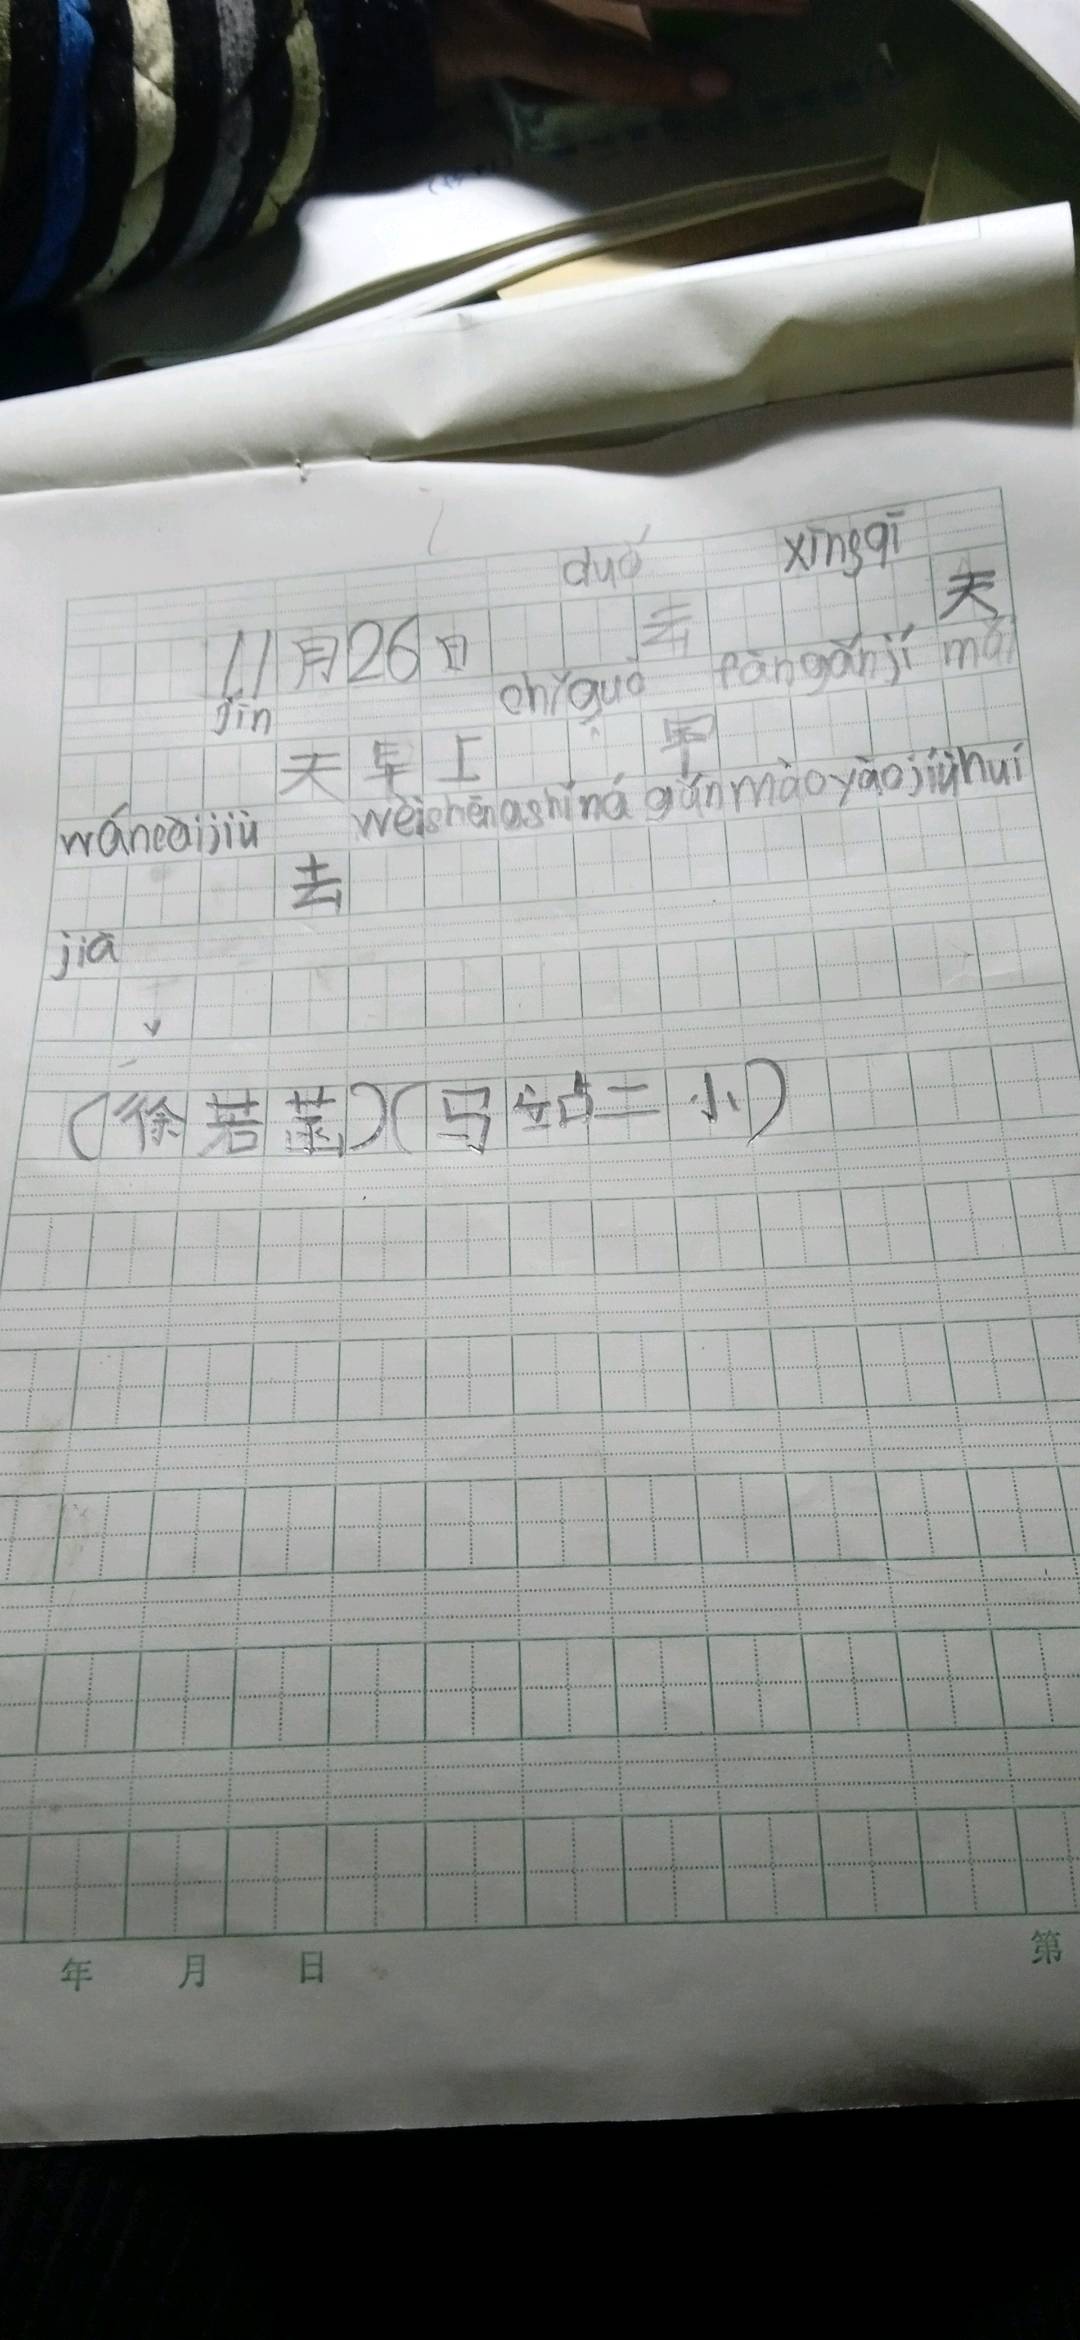 duó xīngqī
11月26日 云 天
jīn chīguò fàngǎnjí mǎi
天早上 早
wáncàijiù wèishēngshìná gǎnmàoyàojiùhuí
去
jiā
(徐若菡)(马站二小)
年 月 日 第